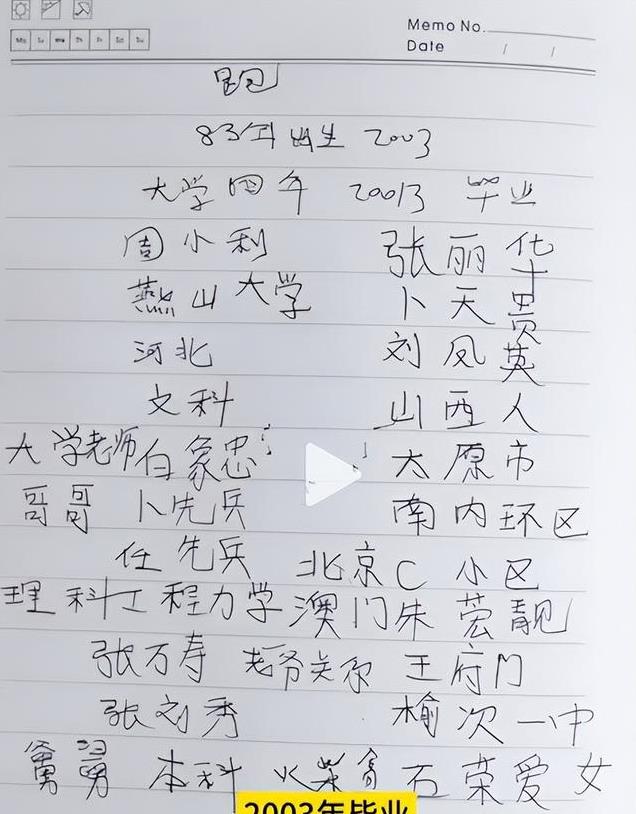 Memo No.
Date / /
Mo Tu We Th Fr Sa Su
83年出生 2003
大学四年 20013 毕业
周小利 张丽华
燕山大学 卜天贵
河北 刘凤英
文科 山西人
大学老师白象忠 太原市
哥哥 卜先兵 南内环区
任先兵 北京C小区
理科工程力学澳门朱 靓
张万寿 老爷关系 王府门
张刘秀 榆次一中
舅舅 本科 石荣爱女
2003年毕业